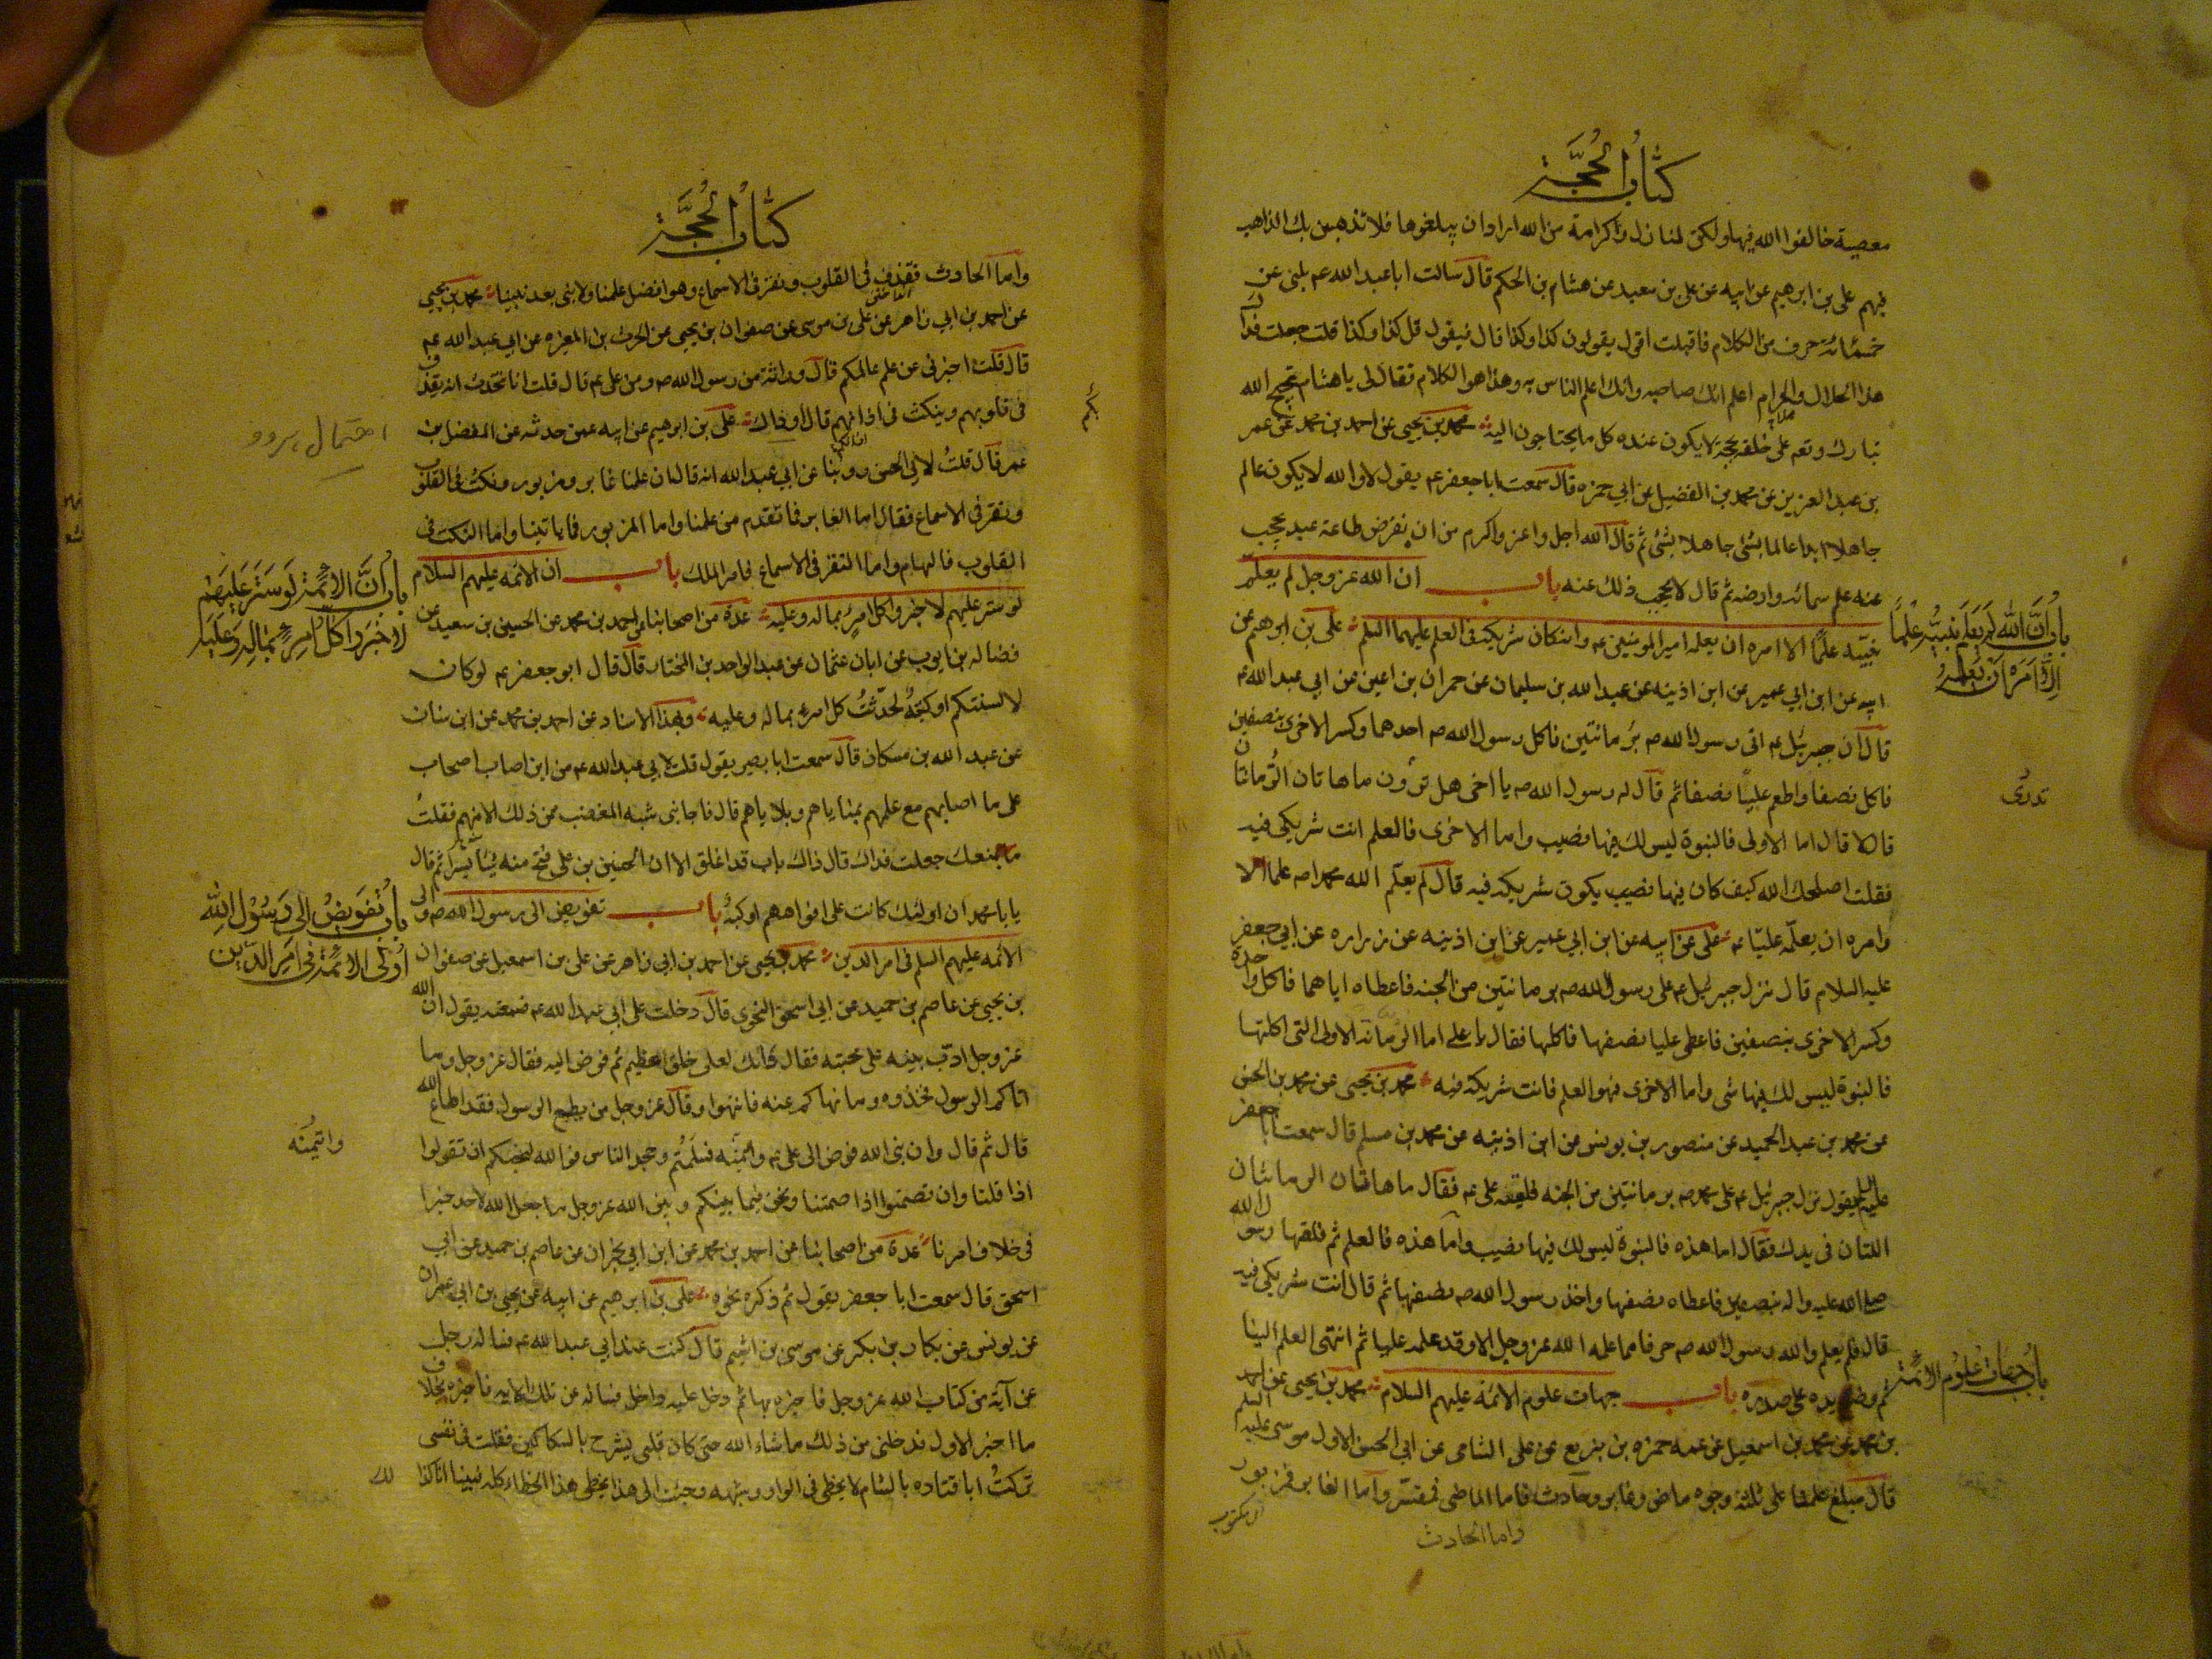 كتاب الحجة
معصية خالفوا الله فيها ولكن لمنازل وكرامة من الله اراد ان يبلغوها فلا تذهبن بك المذاهب
فيهم على بن ابرهيم عن ابيه عن على بن معبد عن هشام بن الحكم قال سالت ابا عبد الله عم بمنى عن
خمسمائة حرف من الكلام فاقبلت اقول يقولون كذا وكذا قال فيقول قل كذا وكذا قلت جعلت فداك
هذا الحلال والحرام اعلم انك صاحبه وانك اعلم الناس به وهذا هو الكلام فقال لى يا هشام يحتج الله
تبارك وتعم على خلقه بحجة لا يكون عنده كل ما يحتاجون اليه محمد بن يحيى عن احمد بن محمد عن عمر
بن عبد العزيز عن محمد بن الفضيل عن ابي حمزه قال سمعت ابا جعفر عم يقول لا والله لا يكون عالم
جاهلا ابدا عالما بشئ جاهلا بشئ ثم قال الله اجل واعز واكرم من ان يفرض طاعة عبد يحجب
عنه علم سمائه وارضه ثم قال لا يحجب ذلك عنه باب ان الله عز وجل لم يعلم
نبيه علما الا امره ان يعلمه امير المومنين عم وانه كان شريكه في العلم عليهما السلم على بن ابرهيم عن
باب ان الله لم يعلم نبيه علما
الا امره ان يعلمه
ابيه عن ابن ابي عمير عن ابن اذينه عن عبد الله بن سليمان عن حمران بن اعين عن ابي عبد الله عم
قال ان جبرئيل عم اتى رسول الله ص برمانتين فاكل رسول الله ص احدهما وكسر الاخرى بنصفين
فاكل نصفا واطعم عليا نصفا ثم قال له رسول الله ص يا اخى هل تدرون ما هاتان الرمانتان
تدرى
قال لا قال اما الاولى فالنبوة ليس لك فيها نصيب واما الاخرى فالعلم انت شريكى فيه
فقلت اصلحك الله كيف كان فيها نصيب يكون شريكه فيه قال لم يعلم الله محمدا ص علما الا
وامره ان يعلمه عليا عم على عن ابيه عن ابن ابي عمير عن ابن اذينه عن زراره عن ابي جعفر
عليه السلام قال نزل جبرئيل عم على رسول الله ص برمانتين من الجنه فاعطاه اياهما فاكل واحدة
وكسر الاخرى بنصفين فاعطى عليا نصفها فاكلها فقال يا على اما الرمانه الاولى التى اكلتها
فالنبوة ليس لك فيها شى واما الاخرى فهو العلم فانت شريكه فيه محمد بن يحيى عن محمد بن الحسن
عن محمد بن عبد الحميد عن منصور بن يونس عن ابن اذينه عن محمد بن مسلم قال سمعت ابا جعفر
عليه السلم يقول نزل جبرئيل عم على محمد ص برمانتين من الجنه فلقيه على عم فقال ما هاتان الرمانتان
اللتان فى يدك فقال اما هذه فالنبوة ليس لك فيها نصيب واما هذه فالعلم ثم فلقها رسول الله
صلى الله عليه واله بنصفين فاعطاه نصفها واخذ رسول الله ص نصفها ثم قال انت شريكى فيه
قال فلم يعلم والله رسول الله ص حرفا مما علمه الله عز وجل الا وقد علمه عليا ثم انتهى العلم الينا
ثم وضع يده على صدره باب جهات علوم الائمة عليهم السلام محمد بن يحيى عن احمد
باب جهات علوم الائمة
بن محمد عن محمد بن اسمعيل عن عمه حمزه بن بزيع عن على الشامى عن ابي الحسن الاول موسى عليه السلم
قال مبلغ علمنا على ثلثة وجوه ماض وغابر وحادث فاما الماضى فمفسر واما الغابر فمزبور
واما الحادث
كتاب الحجة
واما الحادث فقذف فى القلوب ونقر فى الاسماع وهو افضل علمنا ولا نبى بعد نبينا محمد بن يحيى
عن احمد بن ابي زاهر عن على بن موسى عن صفوان بن يحيى عن الحرث بن المغيره عن ابي عبد الله عم
قال قلت اخبرنى عن علم عالمكم قال وراثة من رسول الله ص ومن على عم قال قلت انا نتحدث انه يقذف
فى قلوبهم وينكت فى اذانهم قال او ذاك على بن ابرهيم عن ابيه عمن حدثه عن المفضل بن
عمر قال قلت لابى الحسن روينا عن ابي عبد الله انه قال ان علمنا غابر ومزبور ونكت فى القلوب
ونقر فى الاسماع فقال اما الغابر فما تقدم من علمنا واما المزبور فما ياتينا واما النكت فى
القلوب فالهام واما النقر فى الاسماع فامر الملك باب ان الائمه عليهم السلام
لو ستر عليهم لاخبروا كل امرئ بماله وعليه عدة من اصحابنا عن احمد بن محمد عن الحسين بن سعيد عن
باب ان الائمة لو ستر عليهم
لاخبروا كل امرئ بماله وعليه
فضاله بن ايوب عن ابان عثمان عن عبد الواحد بن المختار قال قال ابو جعفر عم لو كان
لالسنتكم اوكية لحدثت كل امرئ بماله وعليه وبهذا الاسناد عن احمد بن محمد عن ابن سنان
عن عبد الله بن مسكان قال سمعت ابا بصير يقول قلت لابي عبد الله عم من اين اصاب اصحاب
على ما اصابهم مع علمهم بمناياهم وبلاياهم قال فاجابنى شبه المغضب ممن ذلك الا منهم فقلت
ما يمنعك جعلت فداك قال ذاك باب قد اغلق الا ان الحسين بن على فتح منه شيئا يسيرا ثم قال
يا با محمد ان اولئك كانت على افواههم اوكية باب تفويض الى رسول الله ص والى
الائمه عليهم السلم فى امر الدين محمد بن يحيى عن احمد بن ابي زاهر عن على بن اسمعيل عن صفوان
باب تفويض الى رسول الله
بن يحيى عن عاصم بن حميد عن ابي اسحق النحوى قال دخلت على ابي عبد الله عم فسمعته يقول ان الله
عز وجل ادب نبيه على محبته فقال وانك لعلى خلق عظيم ثم فوض اليه فقال عز وجل وما
اتاكم الرسول فخذوه وما نهاكم عنه فانتهوا وقال عز وجل من يطع الرسول فقد اطاع الله
قال ثم قال وان نبى الله فوض الى على عم وائتمنه فسلمتم وجحد الناس فوالله لنحبكم ان تقولوا
وائتمنه
اذا قلنا وان تصمتوا اذا صمتنا ونحن فيما بينكم وبين الله عز وجل ما جعل الله لاحد خيرا
فى خلاف امرنا عدة من اصحابنا عن احمد بن محمد عن ابن ابي نجران عن عاصم بن حميد عن ابي
اسحق قال سمعت ابا جعفر يقول ثم ذكره نحوه على بن ابرهيم عن ابيه عن يحيى بن ابي عمران
عن يونس عن بكار بن بكر عن موسى بن اشيم قال كنت عند ابي عبد الله عم فساله رجل
عن آية من كتاب الله عز وجل فاخبره بها ثم دخل عليه داخل فساله عن تلك الايه فاخبره بخلاف
ما اخبر الاول فدخلنى من ذلك ما شاء الله حتى كان قلبى يشرح بالسكاكين فقلت فى نفسى
تركت ابا قتاده بالشام لا يخطى فى الواو وشبهه وجئت الى هذا يخطى هذا الخطاء كله فبينا انا كذلك